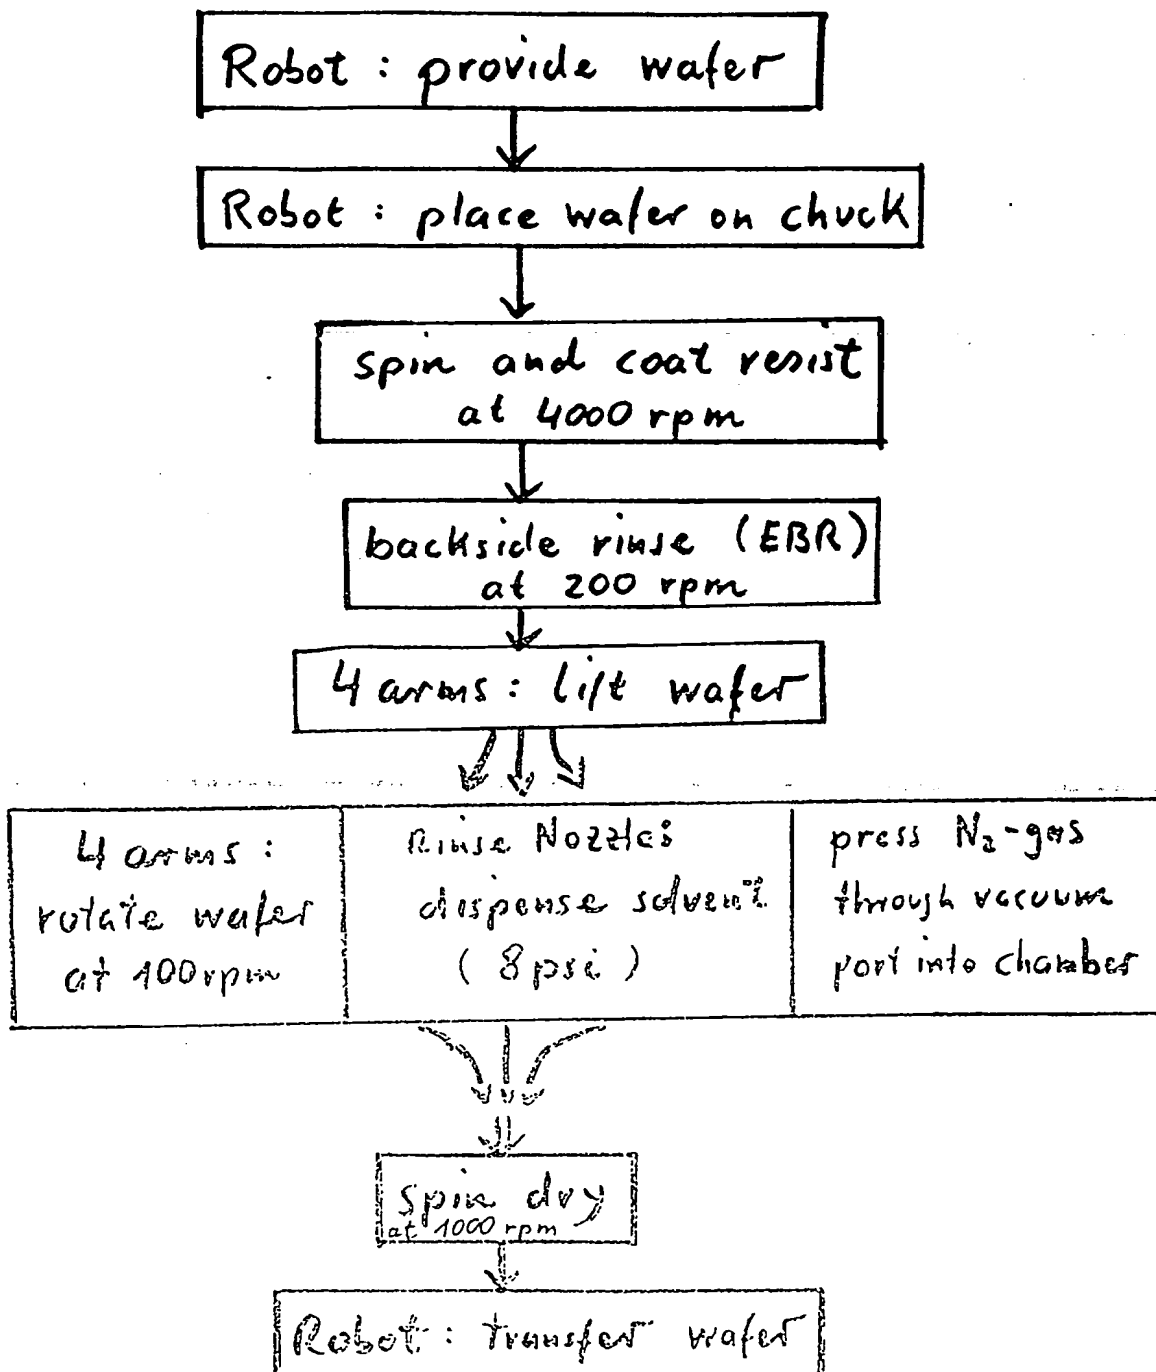 Robot : provide wafer
Robot : place wafer on chuck
spin and coat resist
at 4000 rpm
backside rinse (EBR)
at 200 rpm
4 arms : lift wafer
4 arms :
rotate wafer
at 100 rpm
Rinse Nozzles
dispense solvent
( 8 psi )
press N₂-gas
through vacuum
port into chamber
spin dry
at 1000 rpm
Robot : transfer wafer